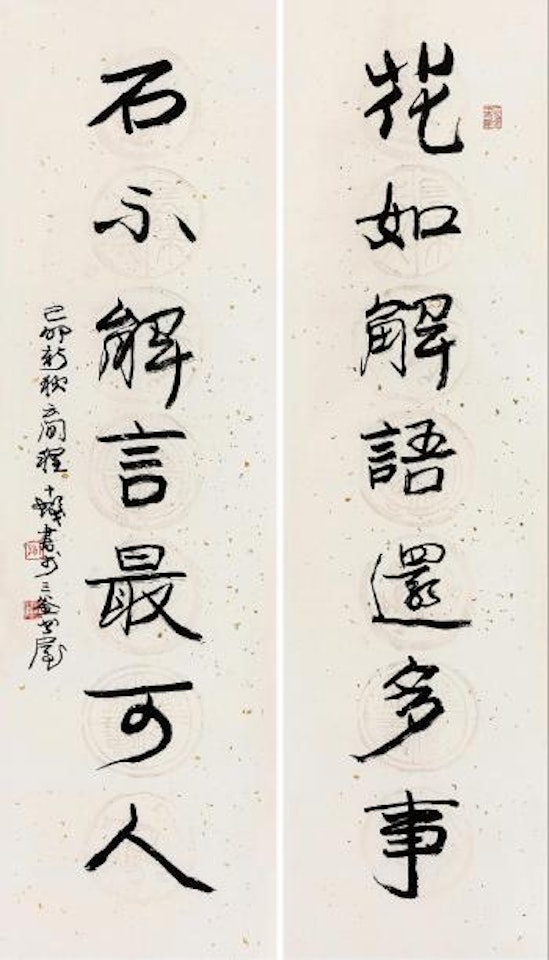 花如解語還多事
石不解言最可人
己卯新秋云間程十髮書於三釜書屋